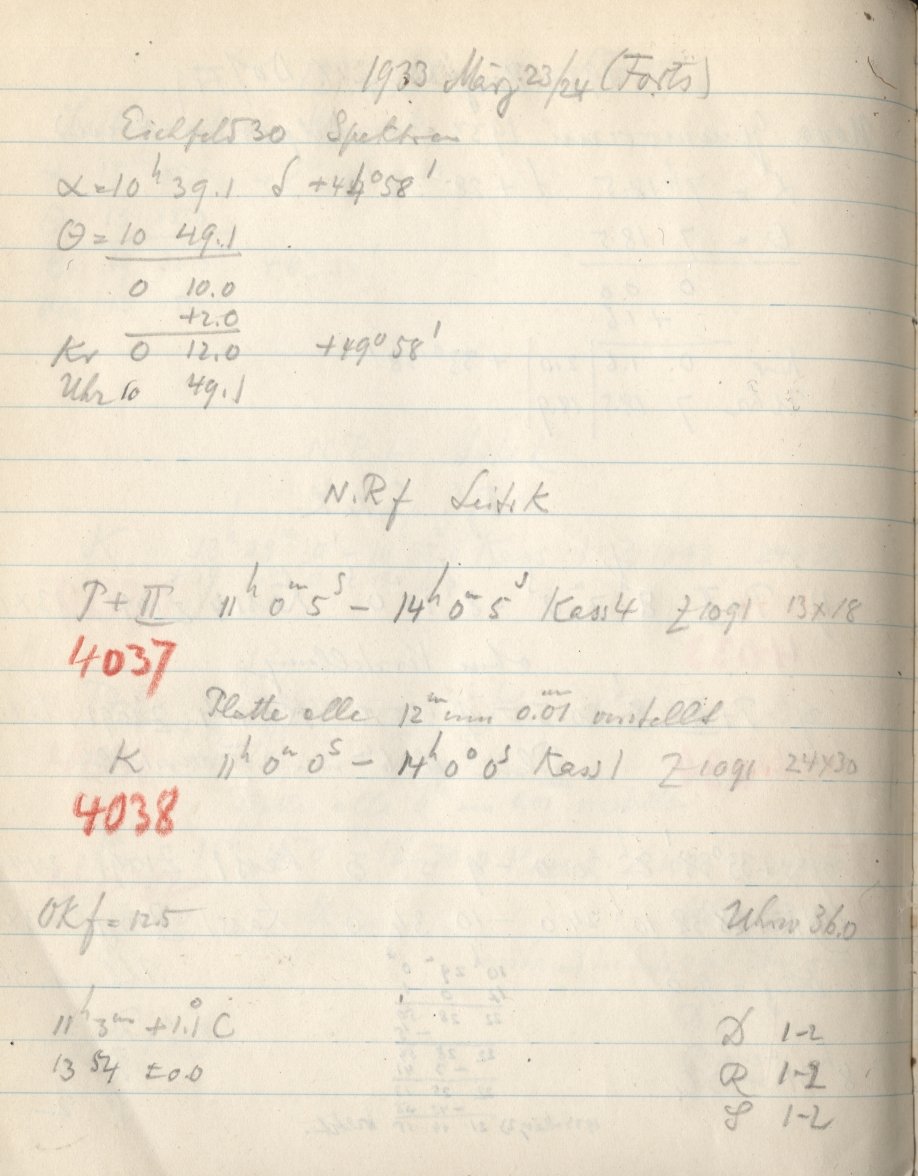 1933 März 23/24 (Forts)
Eichfeld 30 Spektren
α=10h 39.1 δ +44°58'
Θ=10 49.1
0 10.0
+2.0
Kr 0 12.0 +49°58'
Uhr 10 49.1
N.Rf Leitr. K
P+II 11h 0m 5s – 14h 0m 5s Kass4 Z 1091 13x18
4037
Platte alle 12m um 0.01 verstellt
K 11h 0m 0s – 14h 0° 0s Kass1 Z 1091 24x30
4038
OKf=12.5 Uhrw 36.0
11h 3m +1.1° C D 1-2
13 54 ±0.0 R 1-2
S 1-2